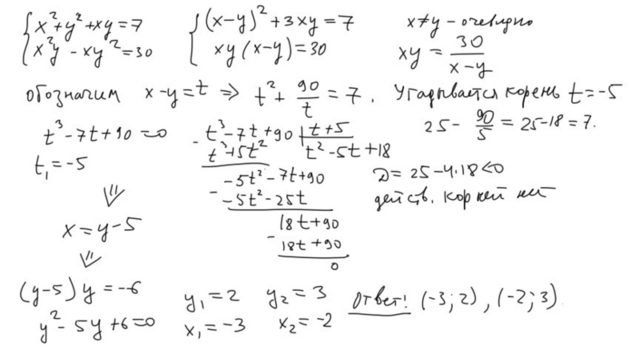 { x²+y²+xy=7 { (x-y)²+3xy=7 x≠y - очевидно
x²y - xy²=30 xy(x-y)=30 xy = 30/(x-y)
обозначим x-y=t ⇒ t² + 90/t = 7. Угадывается корень t=-5
25 - 90/5 = 25-18=7.
t³-7t+90=0
t₁=-5
- t³-7t+90 | t+5
t³+5t² | t²-5t+18
-5t²-7t+90
- -5t²-25t
18t+90
- 18t+90
0
D=25-4·18<0
действ. корней нет
⇓
x=y-5
⇓
(y-5)y=-6
y²-5y+6=0
y₁=2 y₂=3
x₁=-3 x₂=-2
Ответ: (-3;2), (-2;3)